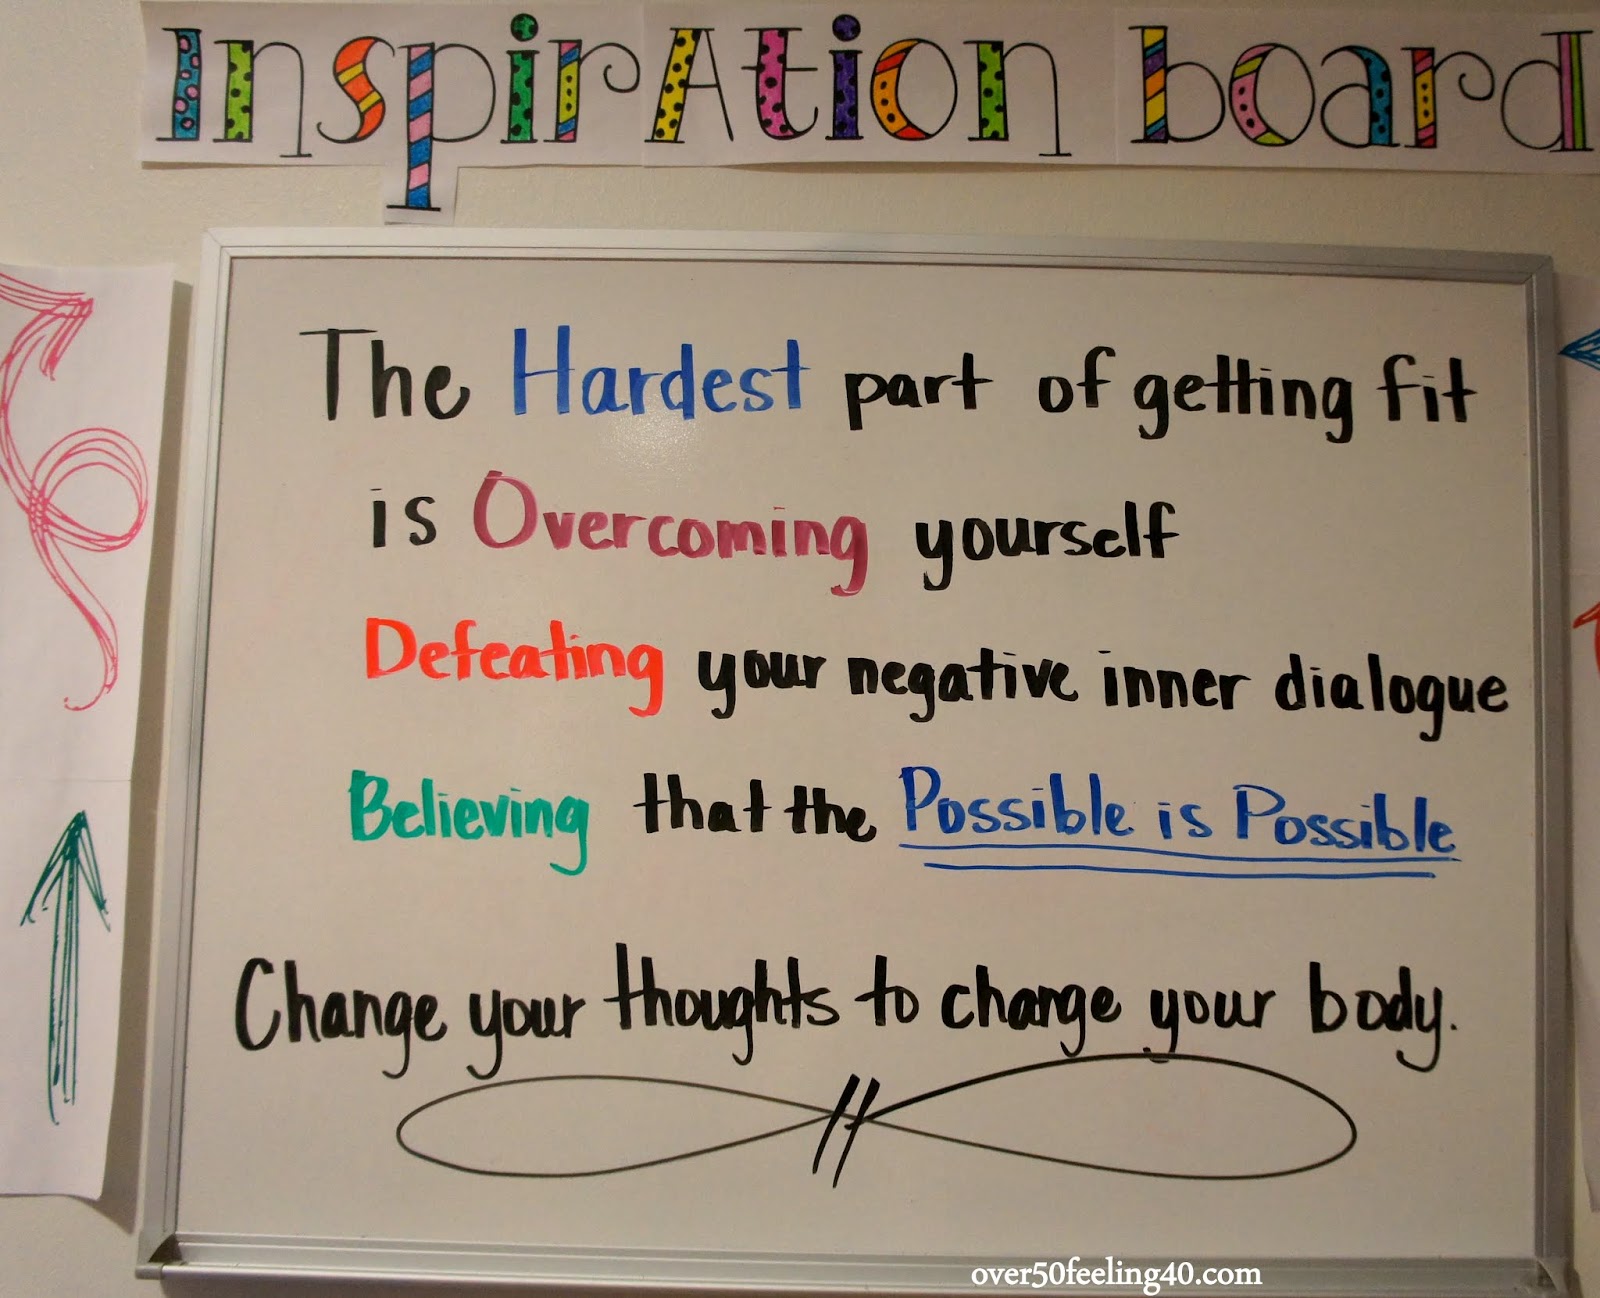 InspirAtion board
The Hardest part of getting fit
is Overcoming yourself
Defeating your negative inner dialogue
Believing that the Possible is Possible
Change your thoughts to change your body.
over50feeling40.com